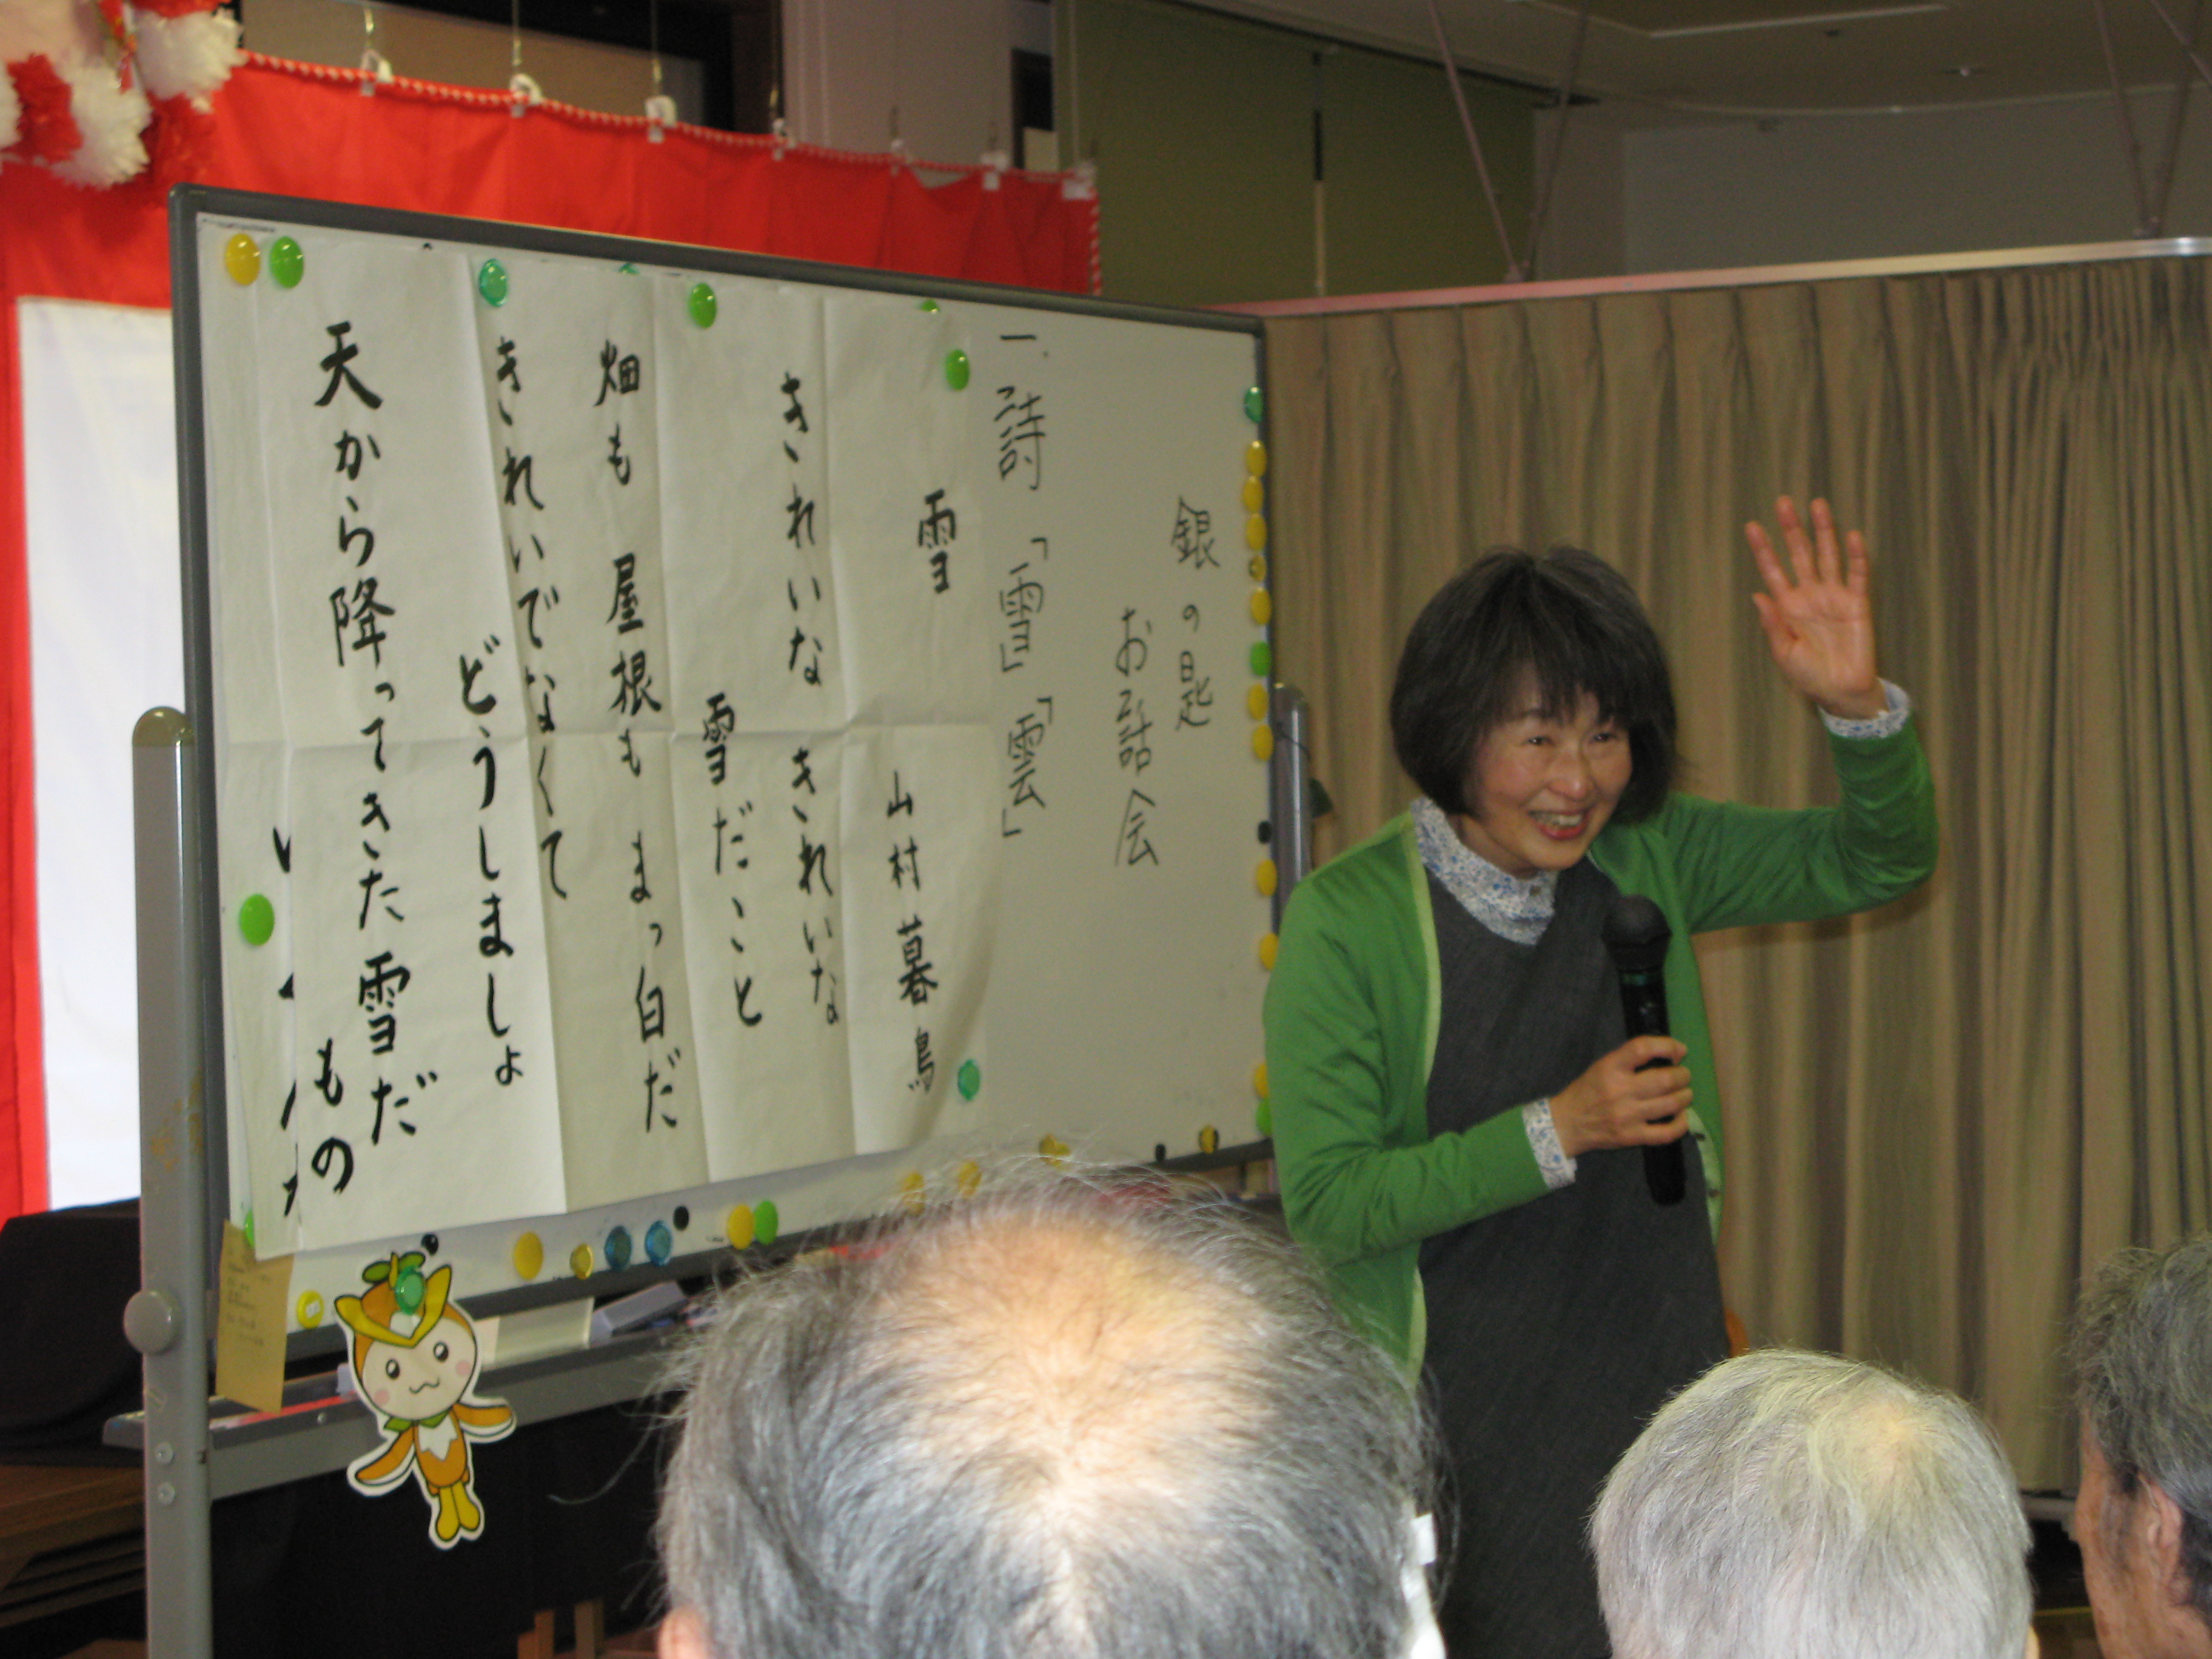 銀の匙
お話会
一. 詩「雪」「雲」
雪
山村暮鳥
きれいな きれいな
雪だこと
畑も 屋根も まっ白だ
きれいでなくて
どうしましょ
天から降ってきた雪だ
もの